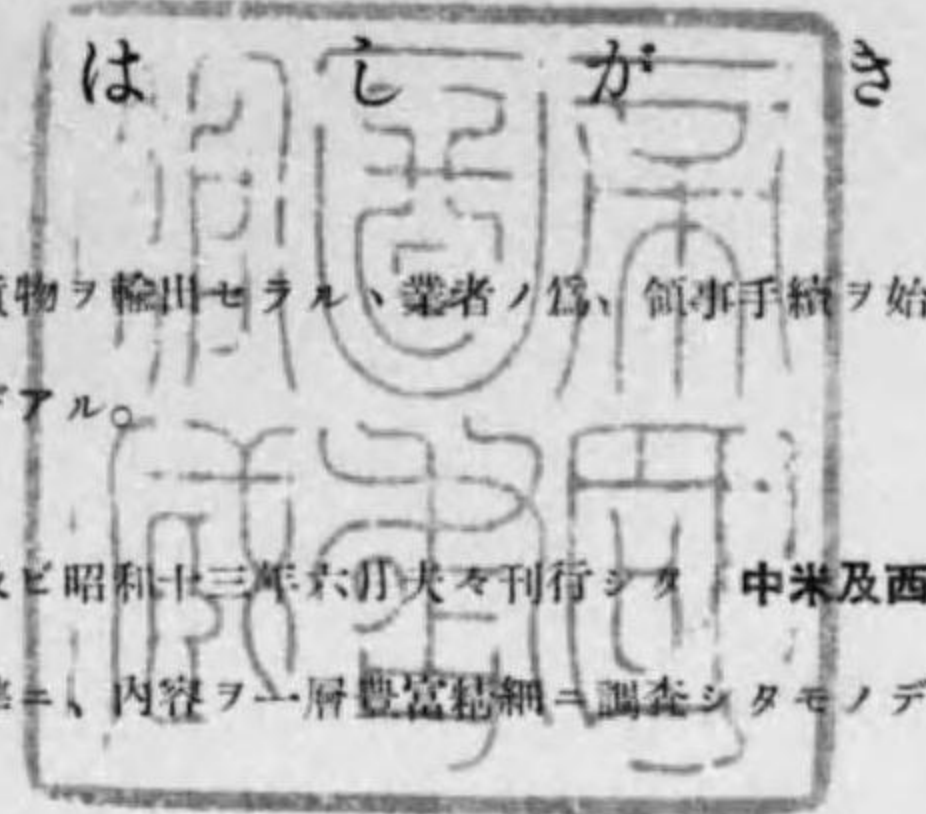 はしがき
物ヲ輸出セラルヽ業者ノ爲、領事手續ヲ始
アル。
ビ昭和十三年六月夫々刊行シタ 中米及西
ニ、內容ヲ一層豐富精細ニ調査シタモノデ